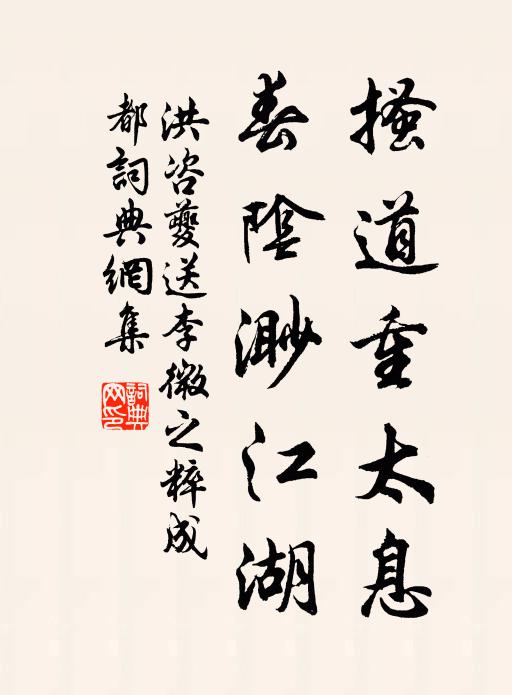 搔道重太息
春陰渺江湖
洪咨夔送李微之粹成
都詞典網集
詞典网印